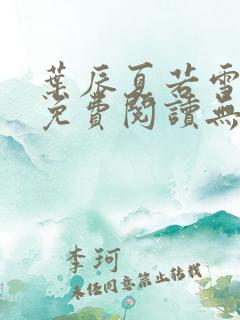 葉辰夏若雪
免費閱讀無
李珂
未经同意禁止转载